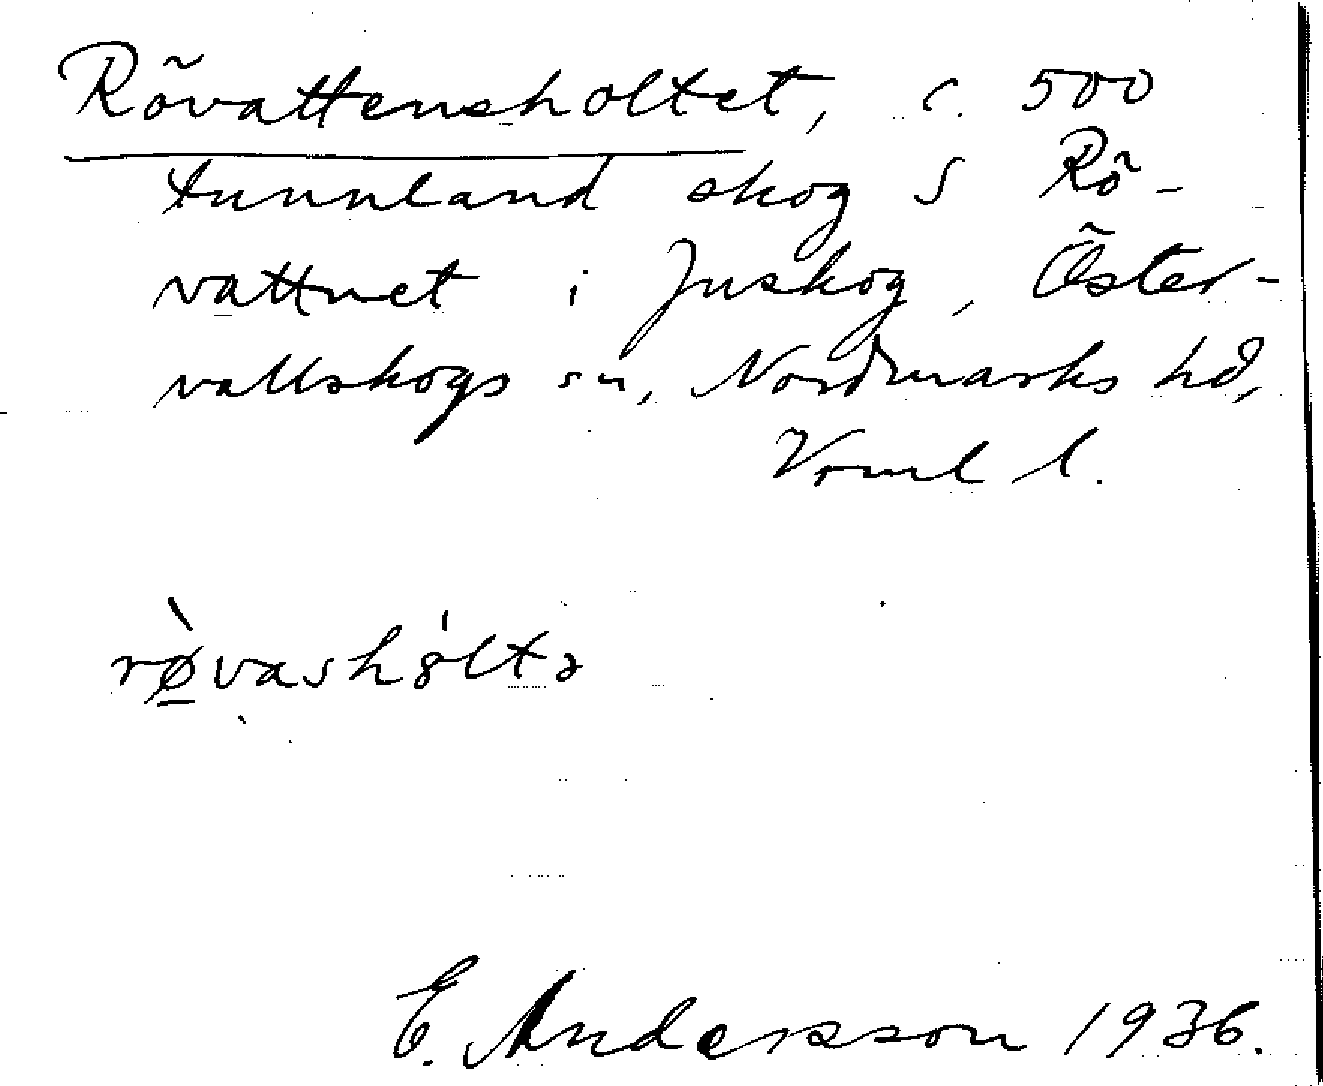 Rövattensholtet, c. 500
tunnland skog S Rö-
vattnet i Juskog, Öster-
vallskogs sn, Nordmarks hd,
Vrml l.
rø̀vashôltə
E. Andersson 1936.